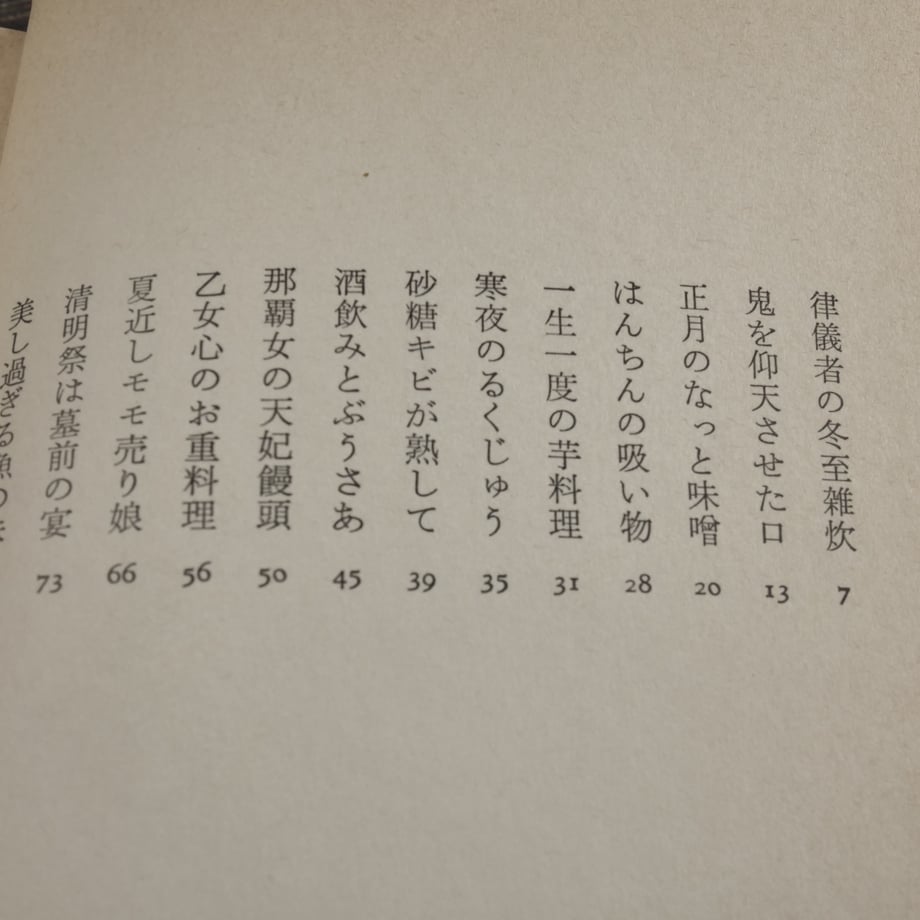 律儀者の冬至雑炊 7
鬼を仰天させた口 13
正月のなっと味噌 20
はんちんの吸い物 28
一生一度の芋料理 31
寒夜のるくじゅう 35
砂糖キビが熟して 39
酒飲みとぶうさあ 45
那覇女の天妃饅頭 50
乙女心のお重料理 56
夏近しモモ売り娘 66
清明祭は墓前の宴 73
美し過ぎる魚の